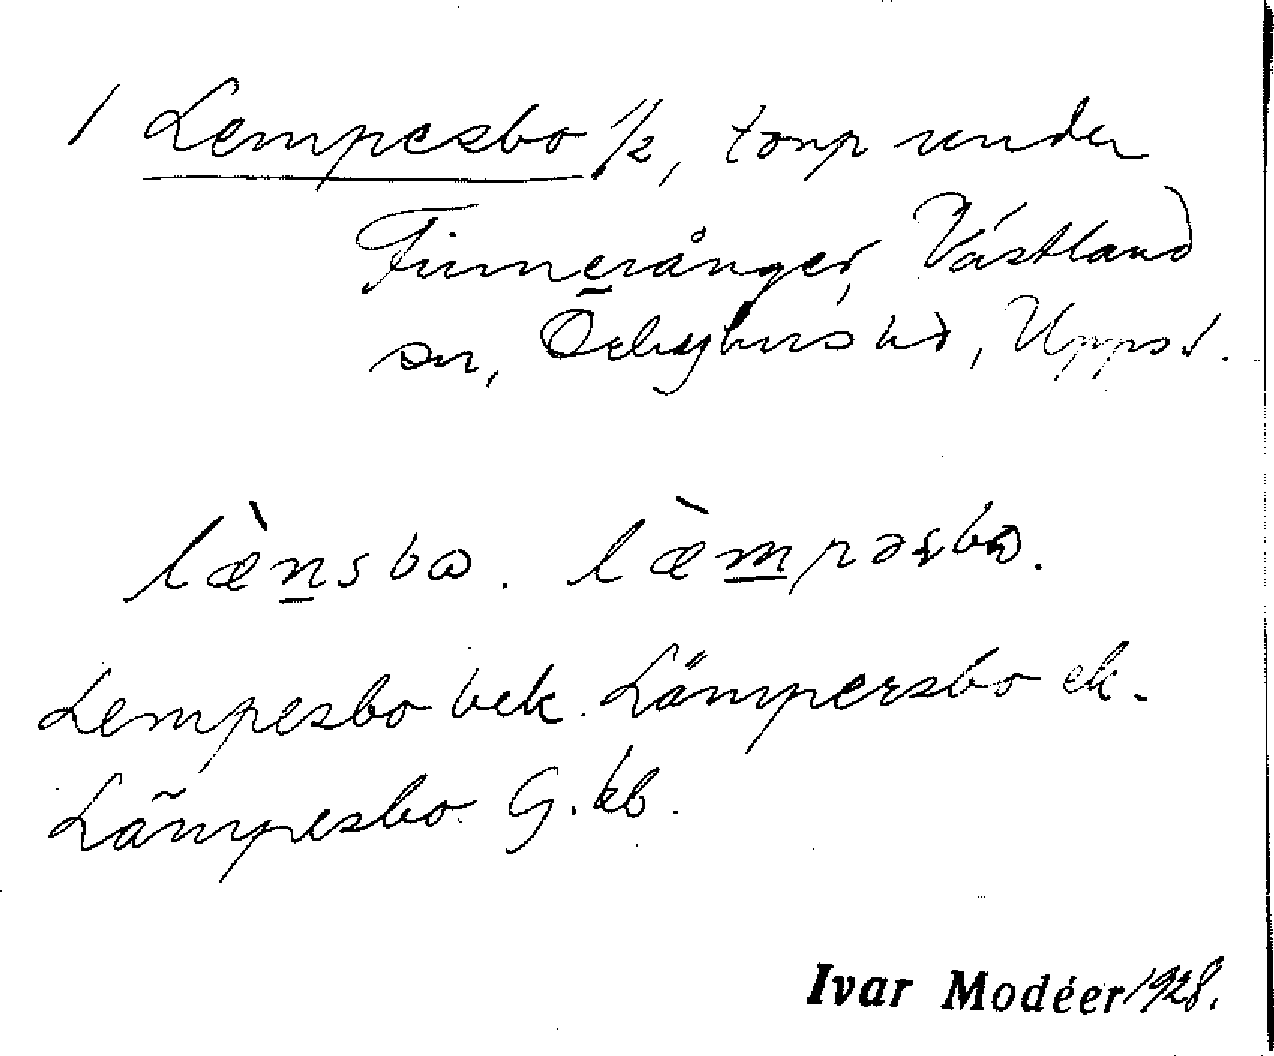 1 Lempesbo 1/2, torp under
Finnerånger, Västland
sn, Örbyhus hd, Upps. l.
læ̀nsbω. læ̀mpəsbω.
Lempesbo bek. Lämpersbo ek.
Lämpesbo G. kb.
Ivar Modéer 1928.